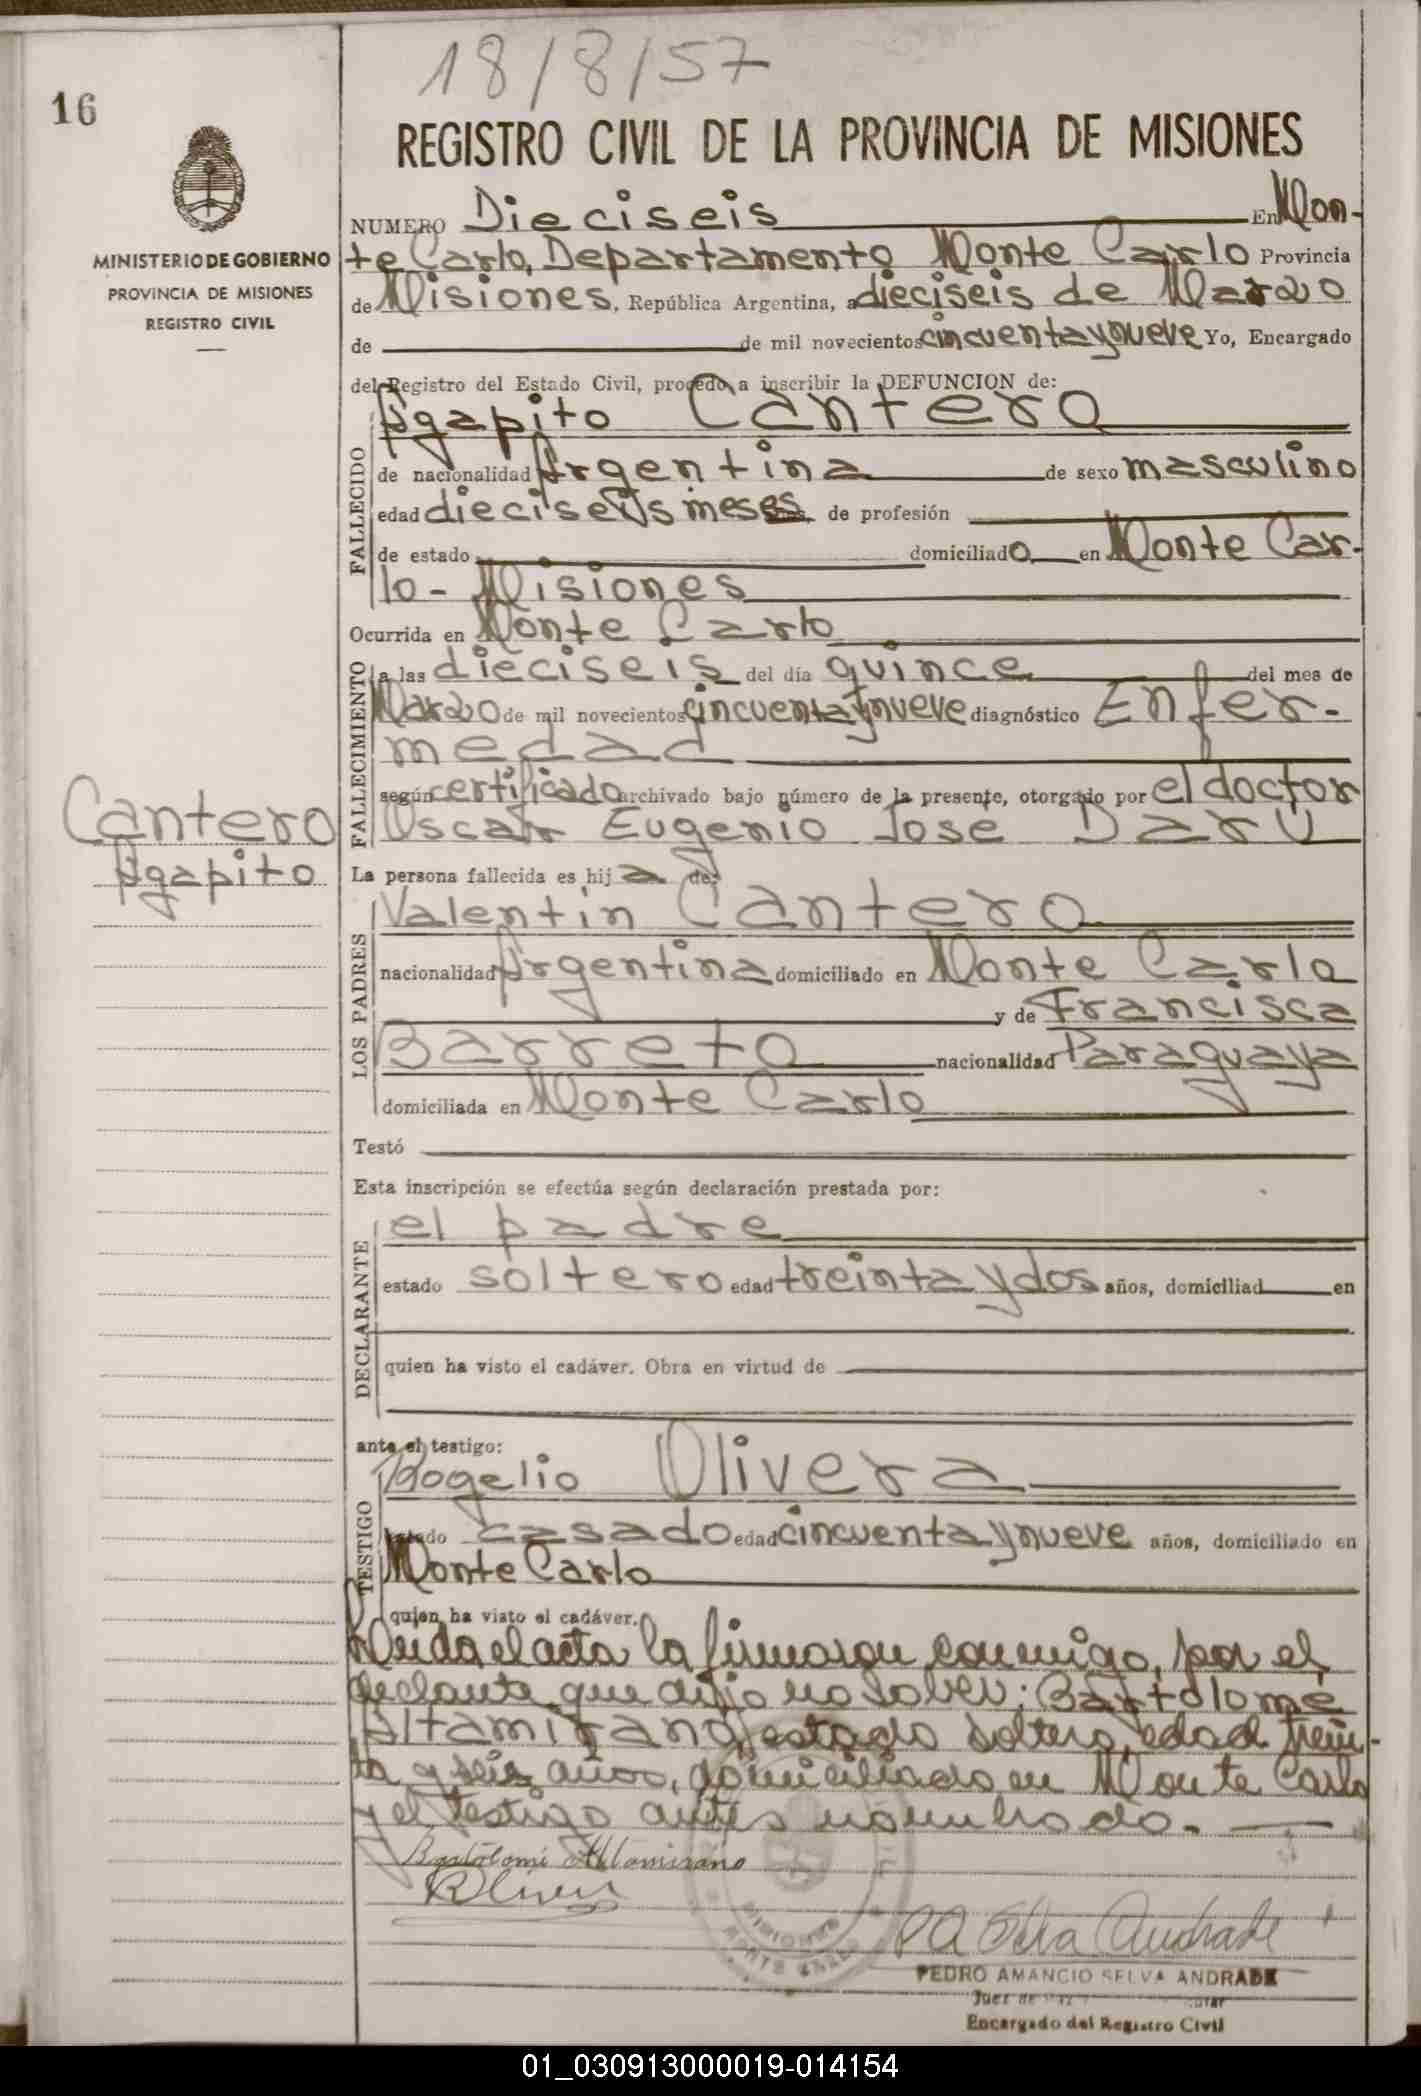 18/8/57
16
REGISTRO CIVIL DE LA PROVINCIA DE MISIONES
MINISTERIO DE GOBIERNO
PROVINCIA DE MISIONES
REGISTRO CIVIL
NUMERO Dieciseis En Mon-
te Carlo, Departamento Monte Carlo Provincia
de Misiones, República Argentina, a dieciseis de Marzo
de de mil novecientos cincuenta y nueve Yo, Encargado
del Registro del Estado Civil, procedo a inscribir la DEFUNCION de:
FALLECIDO
Agapito Cantero
de nacionalidad Argentina de sexo masculino
edad dieciseis meses de profesión
de estado domiciliado en Monte Car-
lo - Misiones
Ocurrida en Monte Carlo
FALLECIMIENTO
a las dieciseis del día quince del mes de
Marzo de mil novecientos cincuenta y nueve diagnóstico Enfer-
medad
según certificado archivado bajo número de la presente, otorgado por el doctor
Oscar Eugenio Jose Daru
Cantero
Agapito
La persona fallecida es hija de:
LOS PADRES
Valentin Cantero
nacionalidad Argentina domiciliado en Monte Carlo
y de Francisca
Barreto nacionalidad Paraguaya
domiciliada en Monte Carlo
Testó
Esta inscripción se efectúa según declaración prestada por:
DECLARANTE
el padre
estado soltero edad treinta y dos años, domiciliad en
quien ha visto el cadáver. Obra en virtud de
ante el testigo:
TESTIGO
Rogelio Olivera
estado casado edad cincuenta y nueve años, domiciliado en
Monte Carlo
quien ha visto el cadáver.
Leida el acta la firmaron conmigo, por el
declarante que dijo no saber: Bartolome
Altamirano, estado soltero, edad trein-
ta y seis años, domiciliado en Monte Carlo
y el testigo antes nombrado.
Bartolomé Altamirano
ROlivera
PA Selva Andrade
MISIONES
MONTE CARLO
PEDRO AMANCIO SELVA ANDRADE
Juez de Paz
Encargado del Registro Civil
01_030913000019-014154